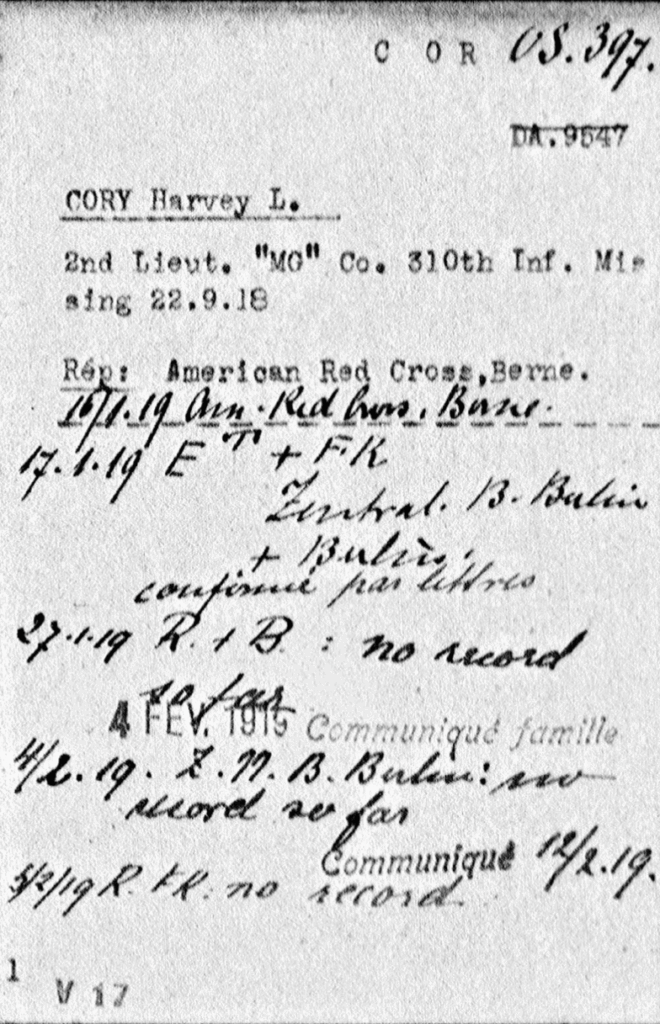 C O R US.397.
DA.9547
CORY Harvey L.
2nd Lieut. "MG" Co. 310th Inf. Mis
sing 22.9.18
Rép: American Red Cross,Berne.
16/1.19 Am. Red Cross. Berne.
17.1.19 E T + FK
Zentral. B. Berlin
+ Berlin.
confirmé par lettres
27.1.19 R. + B : no record
so far
4 FEV. 1919 Communiqué famille
4/2.19. Z.N.B. Berlin: no
record so far
Communiqué 12/2.19.
5/2/19 R. + K: no record
1
V 17